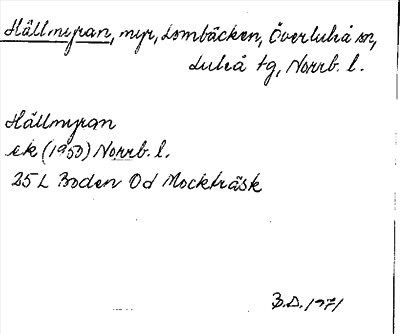 Hällmyran, myr, Lombäcken, Överluleå sn,
Luleå tg, Norrb. l.
Hällmyran
ek (1950) Norrb. l.
25 L Boden Od Mockträsk
B.D. 1971